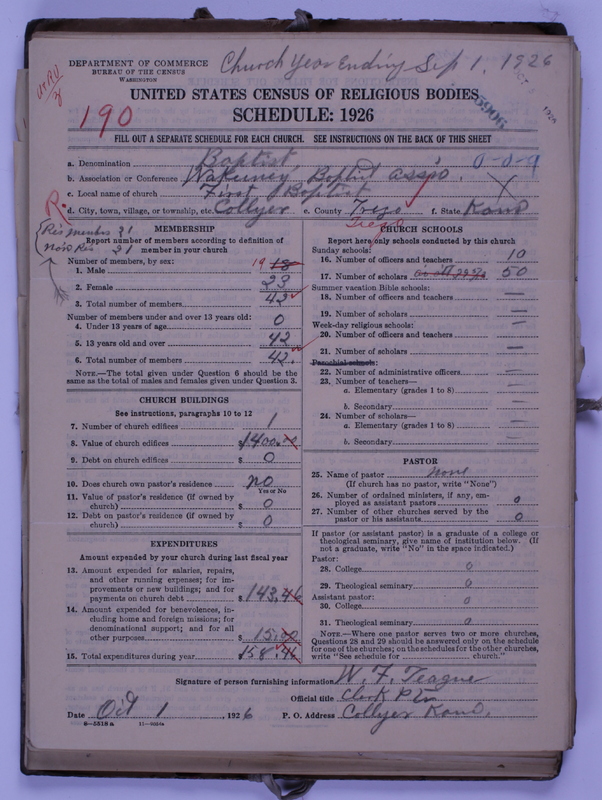 DEPARTMENT OF COMMERCE
BUREAU OF THE CENSUS
WASHINGTON
Church Year Ending Sep 1, 1926
190
UNITED STATES CENSUS OF RELIGIOUS BODIES
SCHEDULE: 1926
FILL OUT A SEPARATE SCHEDULE FOR EACH CHURCH. SEE INSTRUCTIONS ON THE BACK OF THIS SHEET
a. Denomination Baptist 0-0-9
b. Association or Conference Wakeeney Baptist Ass'o.
c. Local name of church First Baptist
R. d. City, town, village, or township, etc. Collyer e. County Trego f. State Kans
Trego
Res members 21
Non Res 21
MEMBERSHIP
Report number of members according to definition of
member in your church
Number of members, by sex:
1. Male 19 18
2. Female 23
3. Total number of members 42
Number of members under and over 13 years old:
4. Under 13 years of age 0
5. 13 years old and over 42
6. Total number of members 42.
NOTE.—The total given under Question 6 should be the
same as the total of males and females given under Question 3.
CHURCH BUILDINGS
See instructions, paragraphs 10 to 12
7. Number of church edifices 1
8. Value of church edifices $1400.00
9. Debt on church edifices $ 0
10. Does church own pastor's residence no
Yes or No
11. Value of pastor's residence (if owned by
church) $ 0
12. Debt on pastor's residence (if owned by
church) $ 0
EXPENDITURES
Amount expended by your church during last fiscal year
13. Amount expended for salaries, repairs,
and other running expenses; for im-
provements or new buildings; and for
payments on church debt $ 143.46
14. Amount expended for benevolences, in-
cluding home and foreign missions; for
denominational support; and for all
other purposes $ 15.00
15. Total expenditures during year $158.46
CHURCH SCHOOLS
Report here only schools conducted by this church
Sunday schools:
16. Number of officers and teachers 10
17. Number of scholars 50
Summer vacation Bible schools:
18. Number of officers and teachers —
19. Number of scholars —
Week-day religious schools:
20. Number of officers and teachers —
21. Number of scholars —
Parochial schools:
22. Number of administrative officers —
23. Number of teachers—
a. Elementary (grades 1 to 8) —
b. Secondary —
24. Number of scholars—
a. Elementary (grades 1 to 8) —
b. Secondary —
PASTOR
25. Name of pastor none
(If church has no pastor, write "None")
26. Number of ordained ministers, if any, em-
ployed as assistant pastors 0
27. Number of other churches served by the
pastor or his assistants 0
If pastor (or assistant pastor) is a graduate of a college or
theological seminary, give name of institution below. (If
not a graduate, write "No" in the space indicated.)
Pastor:
28. College 0
29. Theological seminary 0
Assistant pastor:
30. College 0
31. Theological seminary 0
NOTE.—Where one pastor serves two or more churches,
Questions 28 and 29 should be answered only on the schedule
for one of the churches; on the schedules for the other churches,
write "See schedule for church."
Signature of person furnishing information W. F. Teague
Official title Clerk
Date Oct 1, 1926 P. O. Address Collyer Kans.
8—5518 a 11—9024a